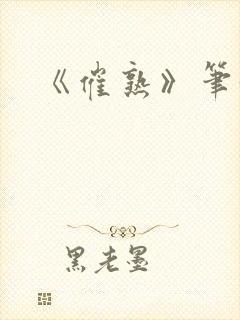 《催熟》笔
黑老墨